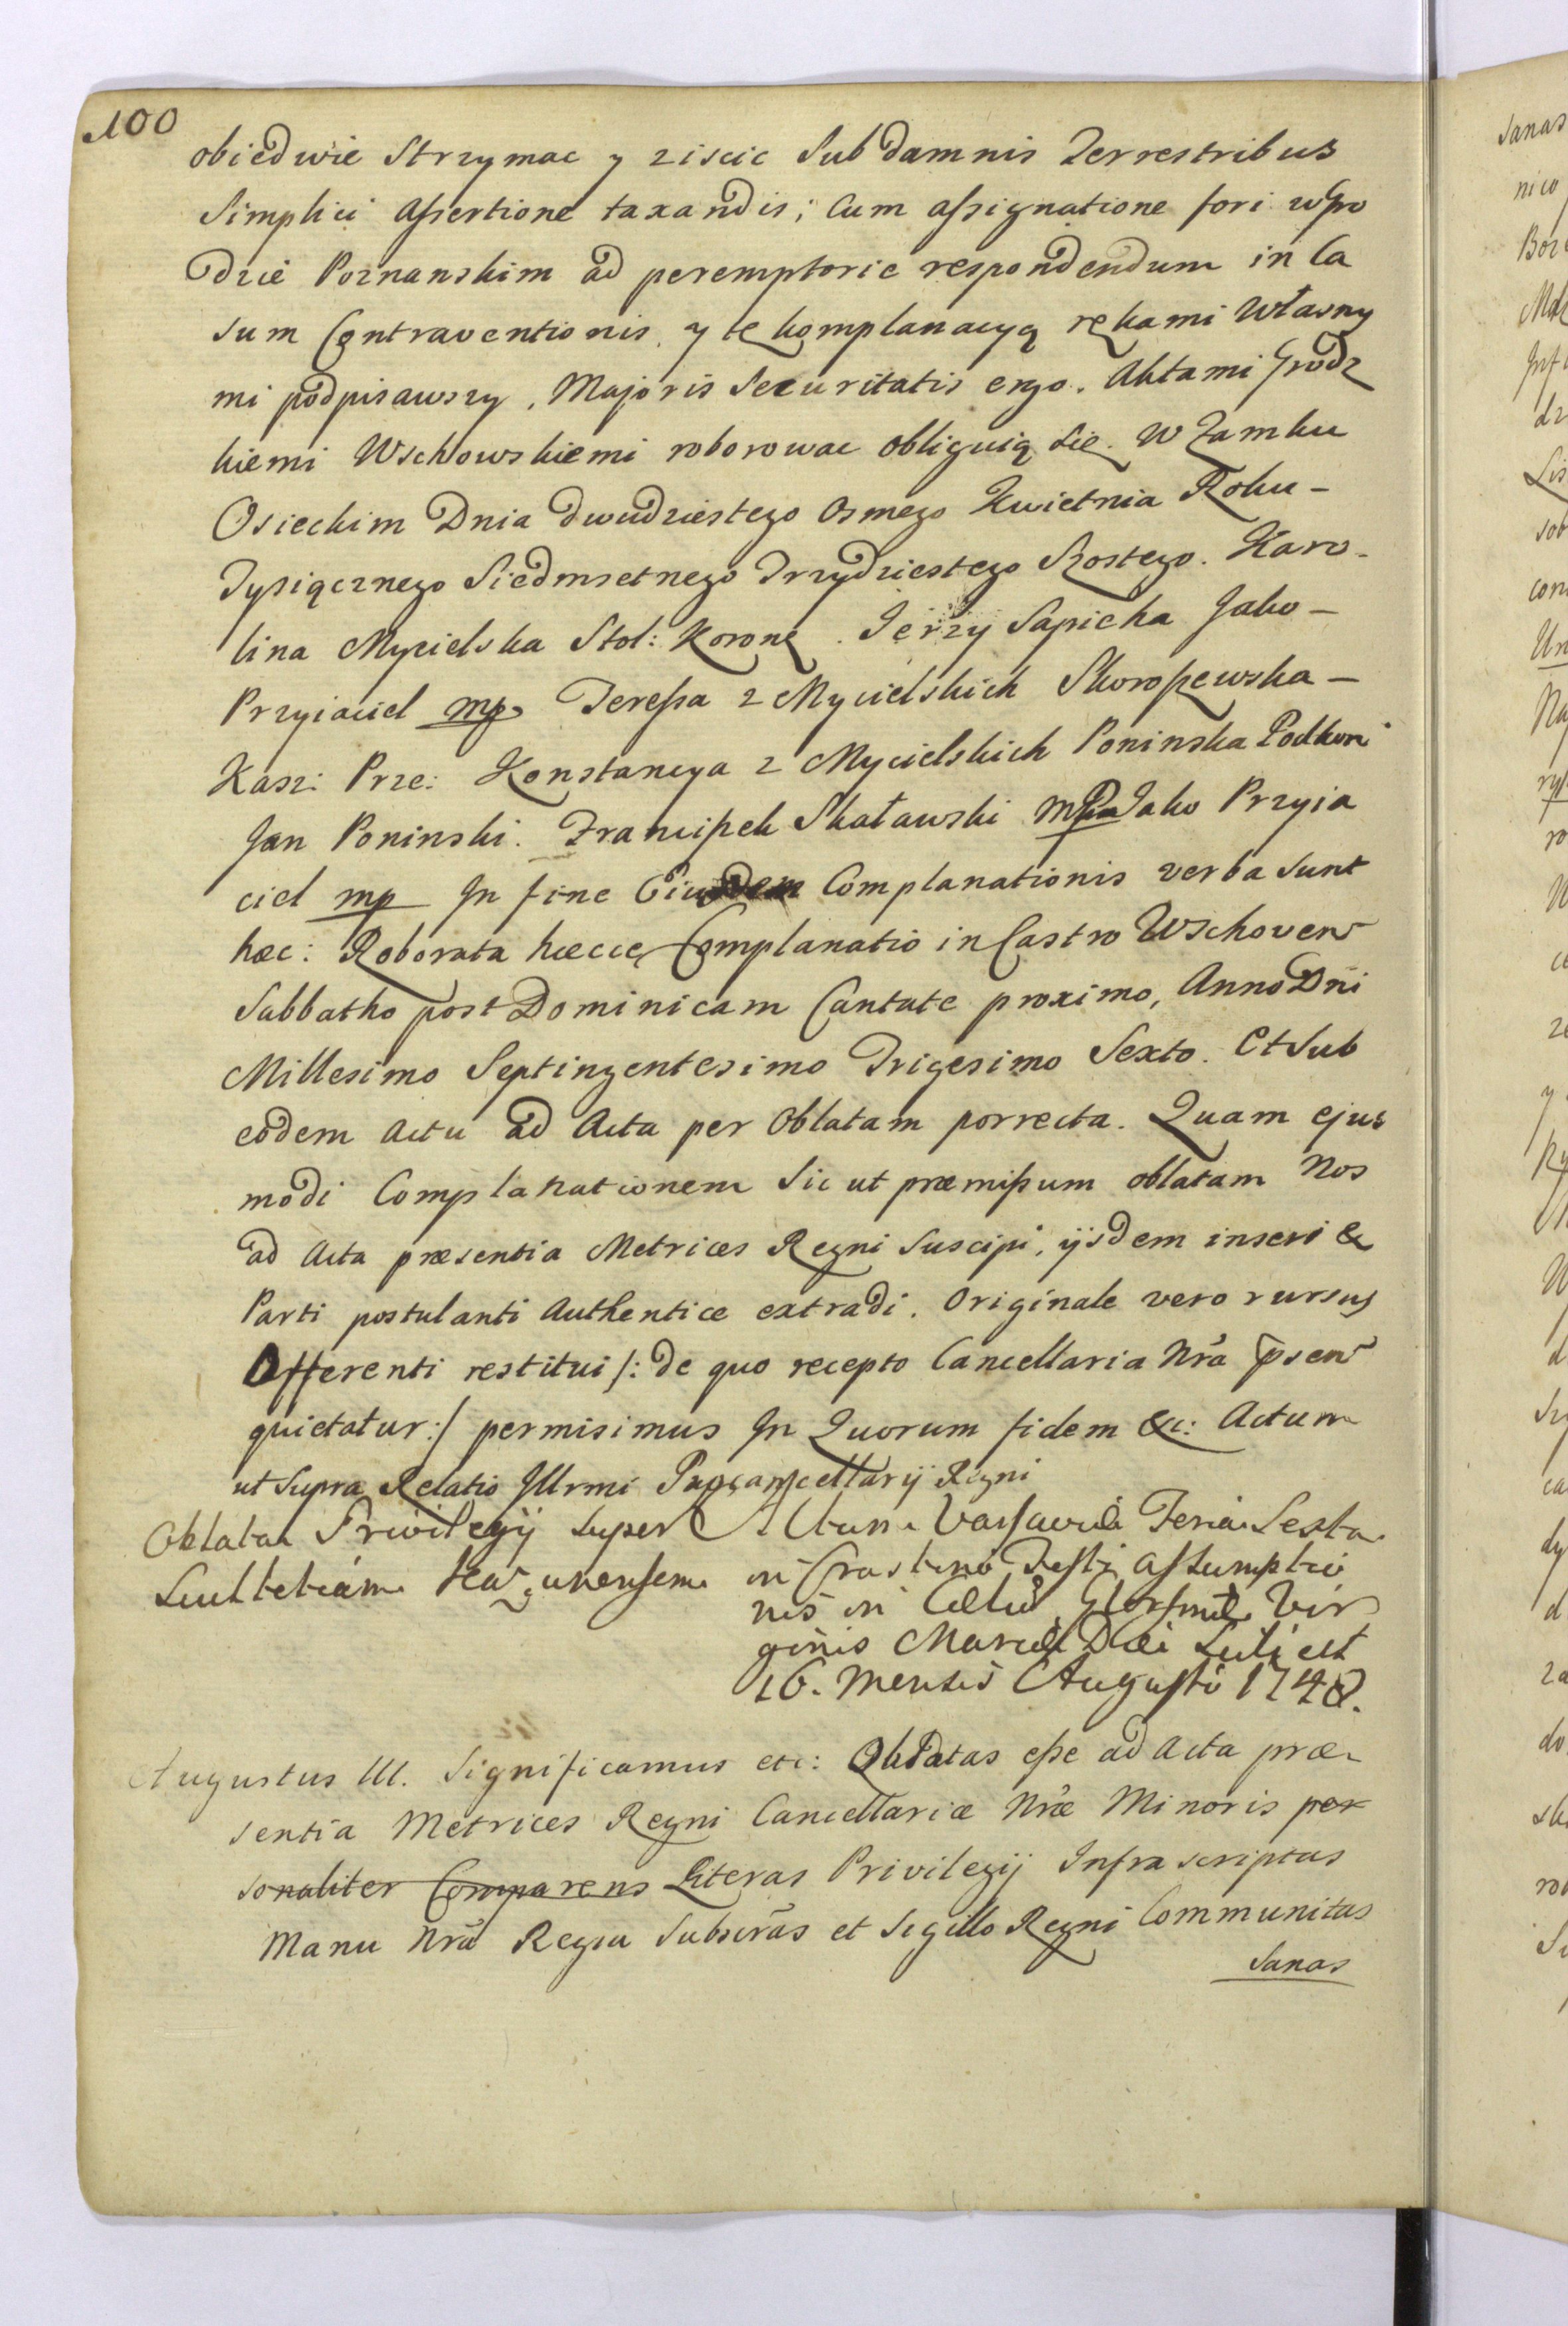 100
obiedwie Strzymac y ziscic Sub damnis Terrestribus
Simplici Assertione taxandis; Cum assignatione fori w Gro
dzie Poznanskim ad peremptorie respondendum in Ca
sum Contraventionis, y tę komplanacyą rękami Własny
mi podpisawszy, Majoris Securitatis ergo. Aktami Grodz
kiemi Wschowskiemi roborowac obliguią się. W Zamku
Osieckim Dnia dwudziestego Osmego Kwietnia Roku –
Tysiącznego Siedmsetnego Trzydziestego Szostego. Karo-
lina Mycielska Stol: Korone. Jerzy Sapieha Jako –
Przyiaciel mp Teressa z Mycielskich Skoroszewska –
Kasz: Prze: Konstancya z Mycielskich Poninska Podkoni
Jan Poninski. Franciszek Skaławski mpa Jako Przyia
ciel mp In fine Eiusdem Complanationis verba sunt
hæc: Roborata hæcce Complanatio in Castro Wschoven
Sabbatho post Dominicam Cantate proximo, Anno Dni
Millesimo Septingentesimo Trigesimo Sexto. Et Sub
eodem actu ad Acta per Oblatam porrecta. Quam ejus
modi Complanationem Sic ut præmissum oblatam Nos
ad Acta præsentia Metrices Regni Suscipi, ijsdem inseri &
Parti postulanti Authentice extradi. Originale vero rursus
Offerenti restitui /: de quo recepto Cancellaria Nrã p̃sen
quietatur :/ permisimus In Quorum fidem &c: Actum
ut Supra Relatio Illrmi Procancellarij Regni
Oblata Privilegij Super
Scultetiam
Actum Varsaviæ Feria Sexta
in Crastino Festi Assumptio
nis in Cælum Glorsmæ Vir
ginis Mariæ Dei
16. Mensis Augusti 1748.
Augustus III. Significamus etc: Oblatas esse ad Acta præ
sentia Metrices Regni Cancellariæ Nræ Minoris per
sonaliter Comparens Literas Privilegij Infrascriptas
Manu Nrã Regia Subscrãs et Sigillo Regni Communitas
Sanas